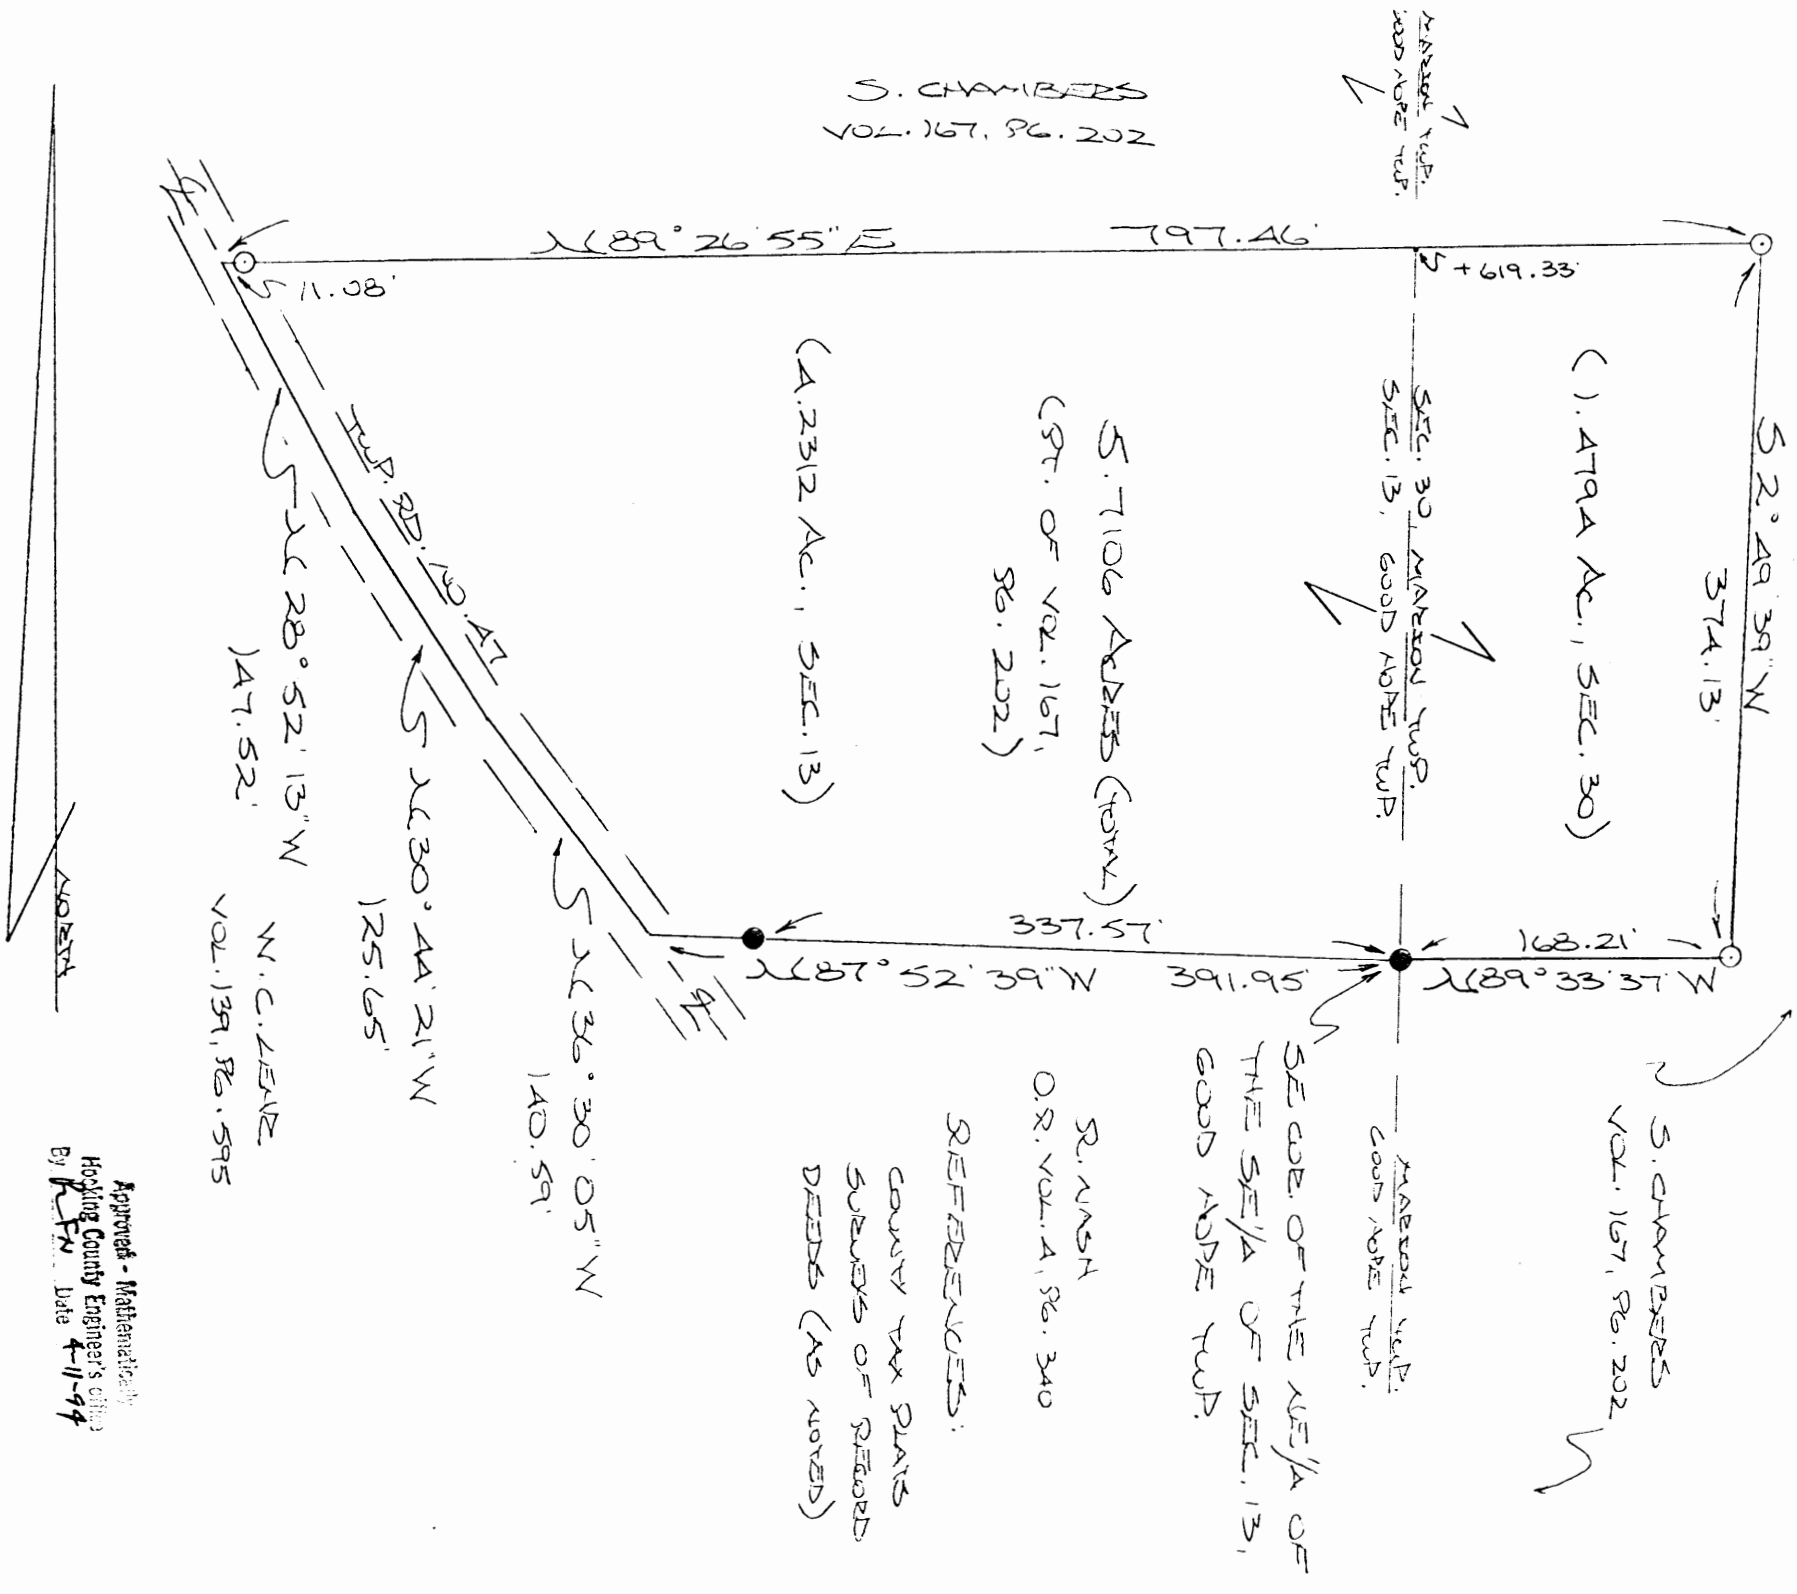 S. CHAMBERS
VOL. 167, PG. 202
MARION TWP.
GOOD HOPE TWP.
N 89° 26' 55" E
797.46'
11.08'
+ 619.33'
S 2° 49' 39" W
374.13'
(1.4794 AC., SEC. 30)
SEC. 30, MARION TWP.
SEC. 13, GOOD HOPE TWP.
5.7106 ACRES (TOTAL)
(PT. OF VOL. 167,
PG. 202)
(4.2312 AC., SEC. 13)
TWP. RD. NO. 47
N 28° 52' 13" W
147.52'
N 30° 44' 21" W
125.65'
N 36° 30' 05" W
140.59'
℄
℄
337.57'
N 87° 52' 39" W
391.95'
168.21'
N 89° 33' 37" W
S. CHAMBERS
VOL. 167, PG. 202
MARION TWP.
GOOD HOPE TWP.
SE COR. OF THE NE/4 OF
THE SE/4 OF SEC. 13,
GOOD HOPE TWP.
R. NASH
O.R. VOL. 4, PG. 340
REFERENCES:
COUNTY TAX PLATS
SURVEYS OF RECORD
DEEDS (AS NOTED)
W. C. LENZ
VOL. 139, PG. 595
NORTH
Approved - Mathematically
Hocking County Engineer's office
By RFN Date 4-11-94